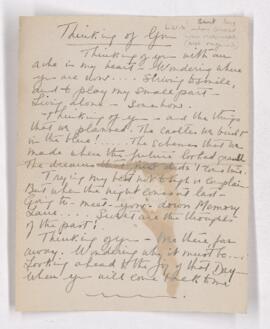 Thinking of You
Thinking of you with an
ache in my heart - Wondering where
you are now.... Striving to smile,
and to play my small part -
Living alone - Somehow.
Thinking of you - and the things
that we planned. The castles we built
in the blue!.... The schemes that we
made when the future looked grand
The dreams that didn't come true.
Trying my best not to sigh or complain
But when the night comes at last -
Going to meet you down Memory
Lane.... Such are the thoughts
of the past!
Thinking of you - Me there far
away. Wondering why it must be...
Looking ahead to the joy of that Day
When you will come back to me